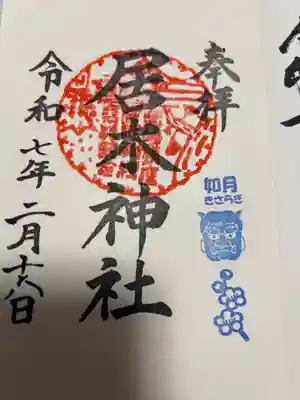 奉拝
居木神社
令和七年二月十六日
如月
きさらぎ